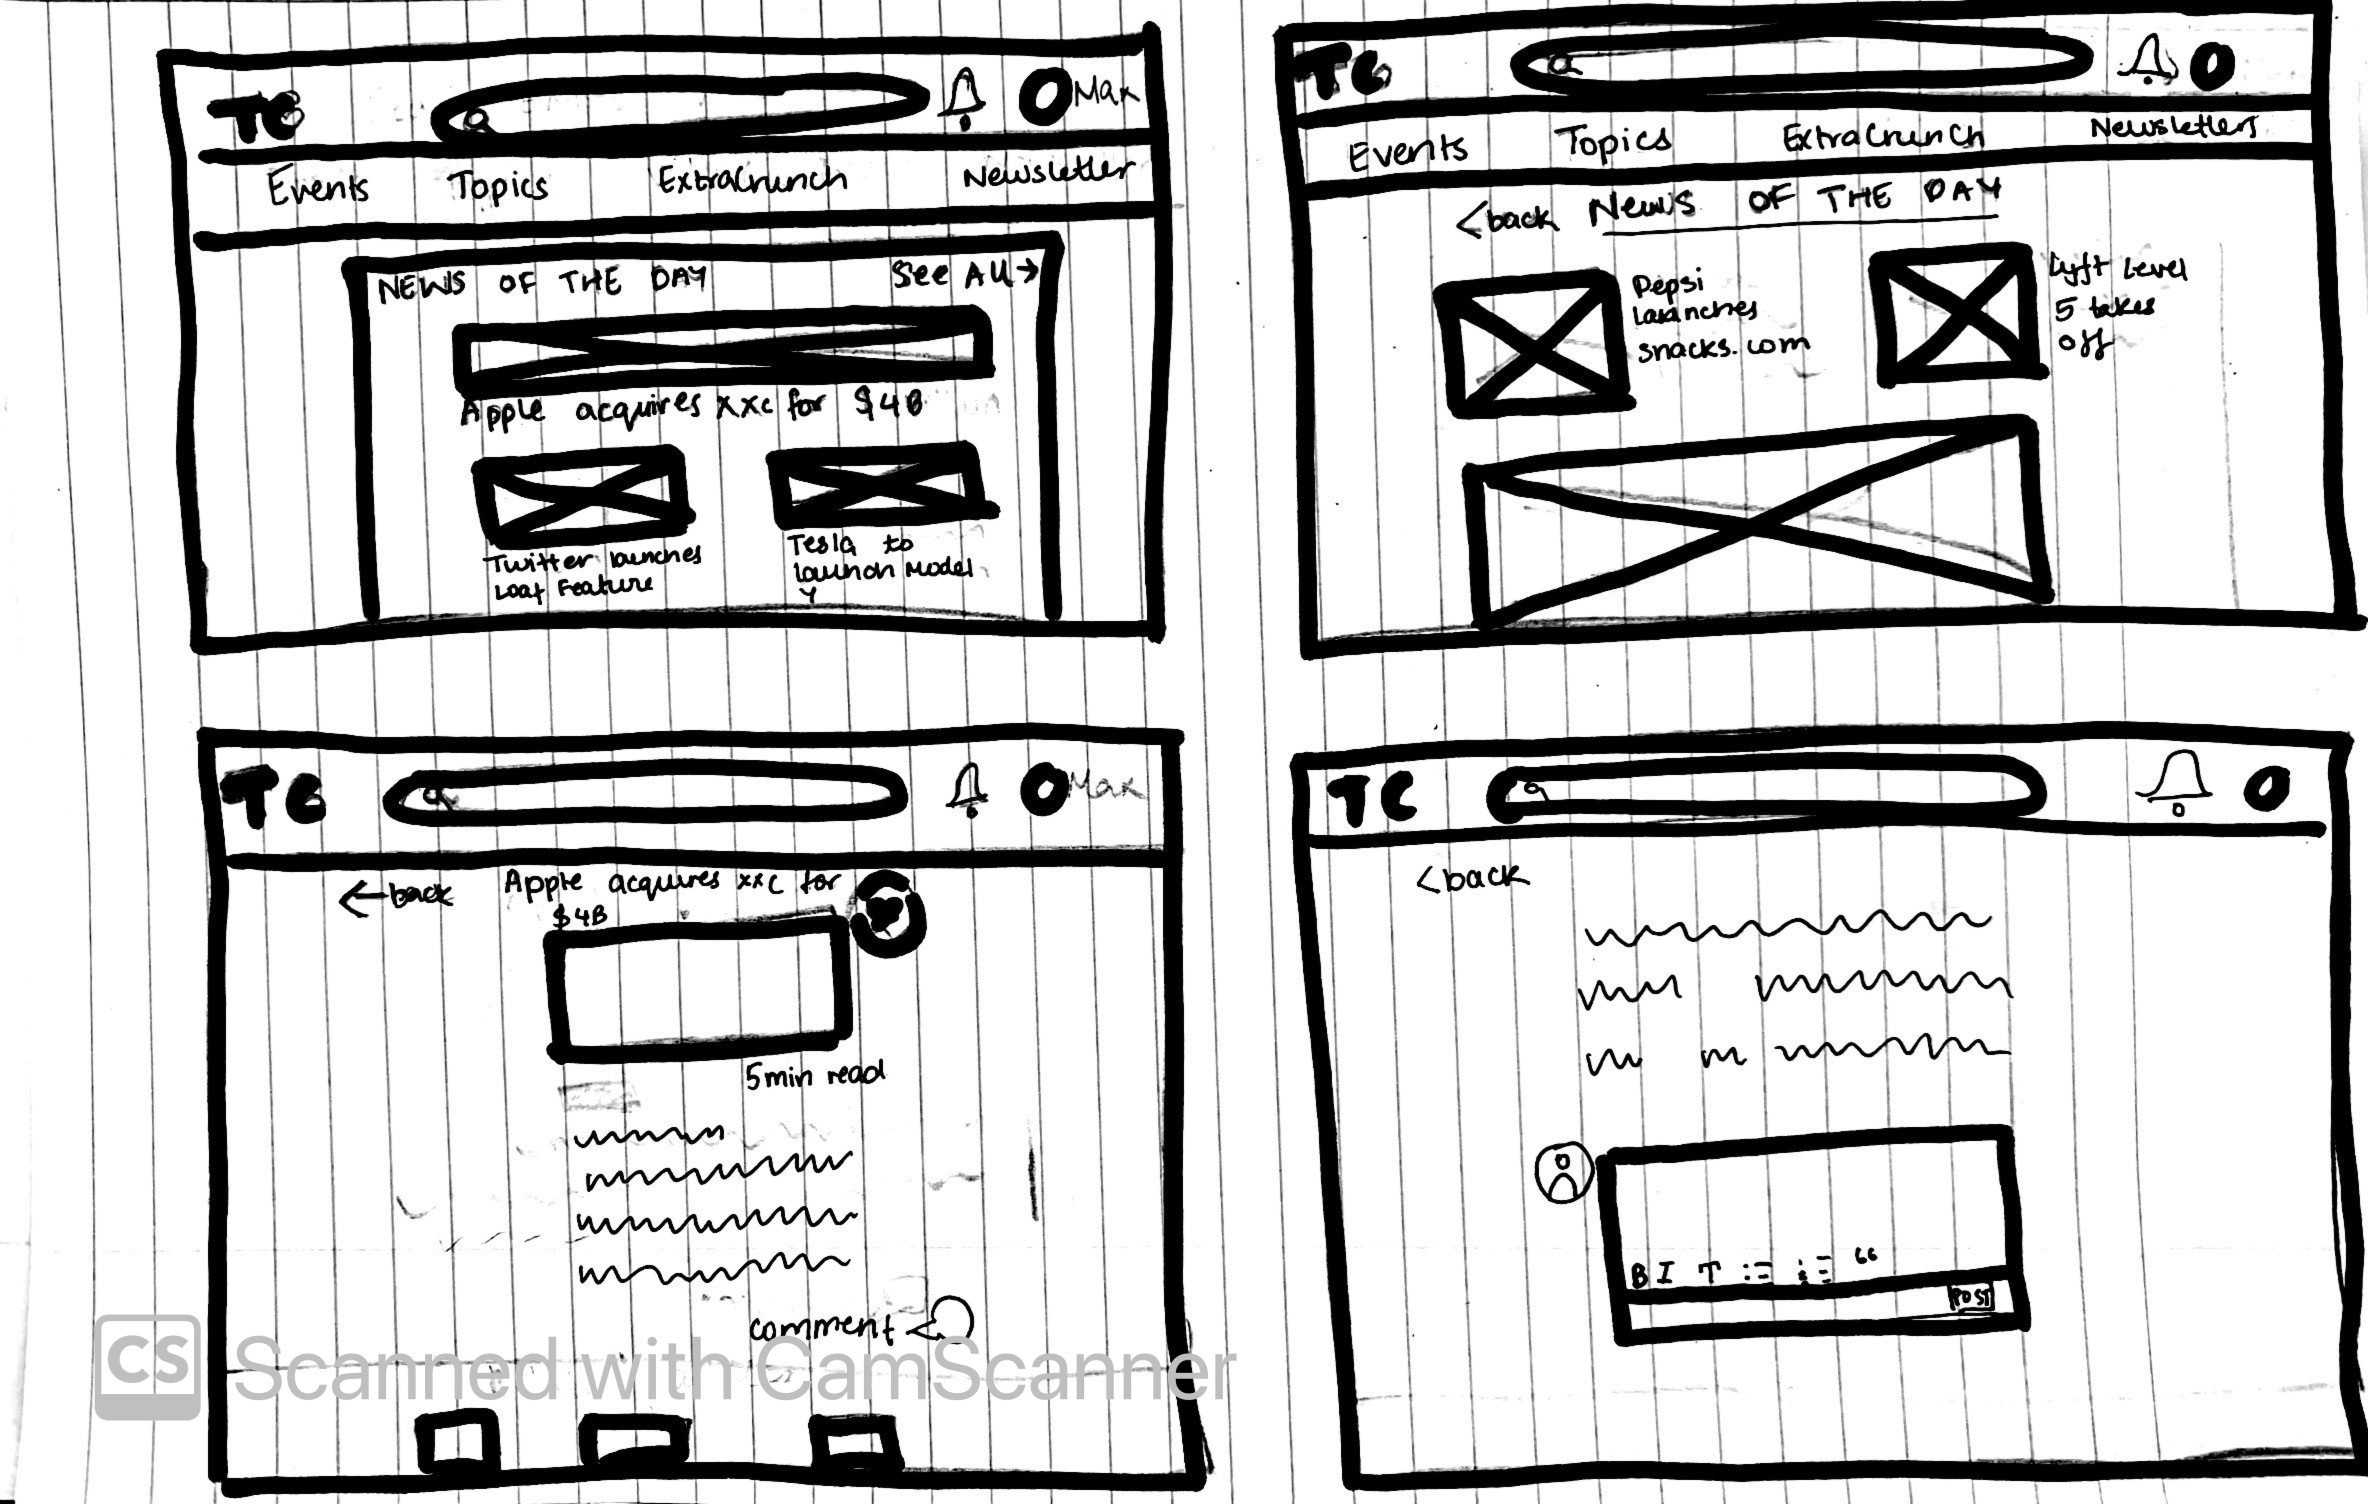 TC
Max
Events Topics ExtraCrunch Newsletter
NEWS OF THE DAY See All →
Apple acquires xxc for $4B
Twitter launches
Feature
Tesla to
launch Model
Y
TC
Events Topics ExtraCrunch Newsletters
<back News OF THE DAY
Pepsi
launches
snacks.com
Lyft Level
5 takes
off
TC
Max
←back Apple acquires xxc for
$4B
5min read
comment
TC
<back
B I T “
POST
CS Scanned with CamScanner